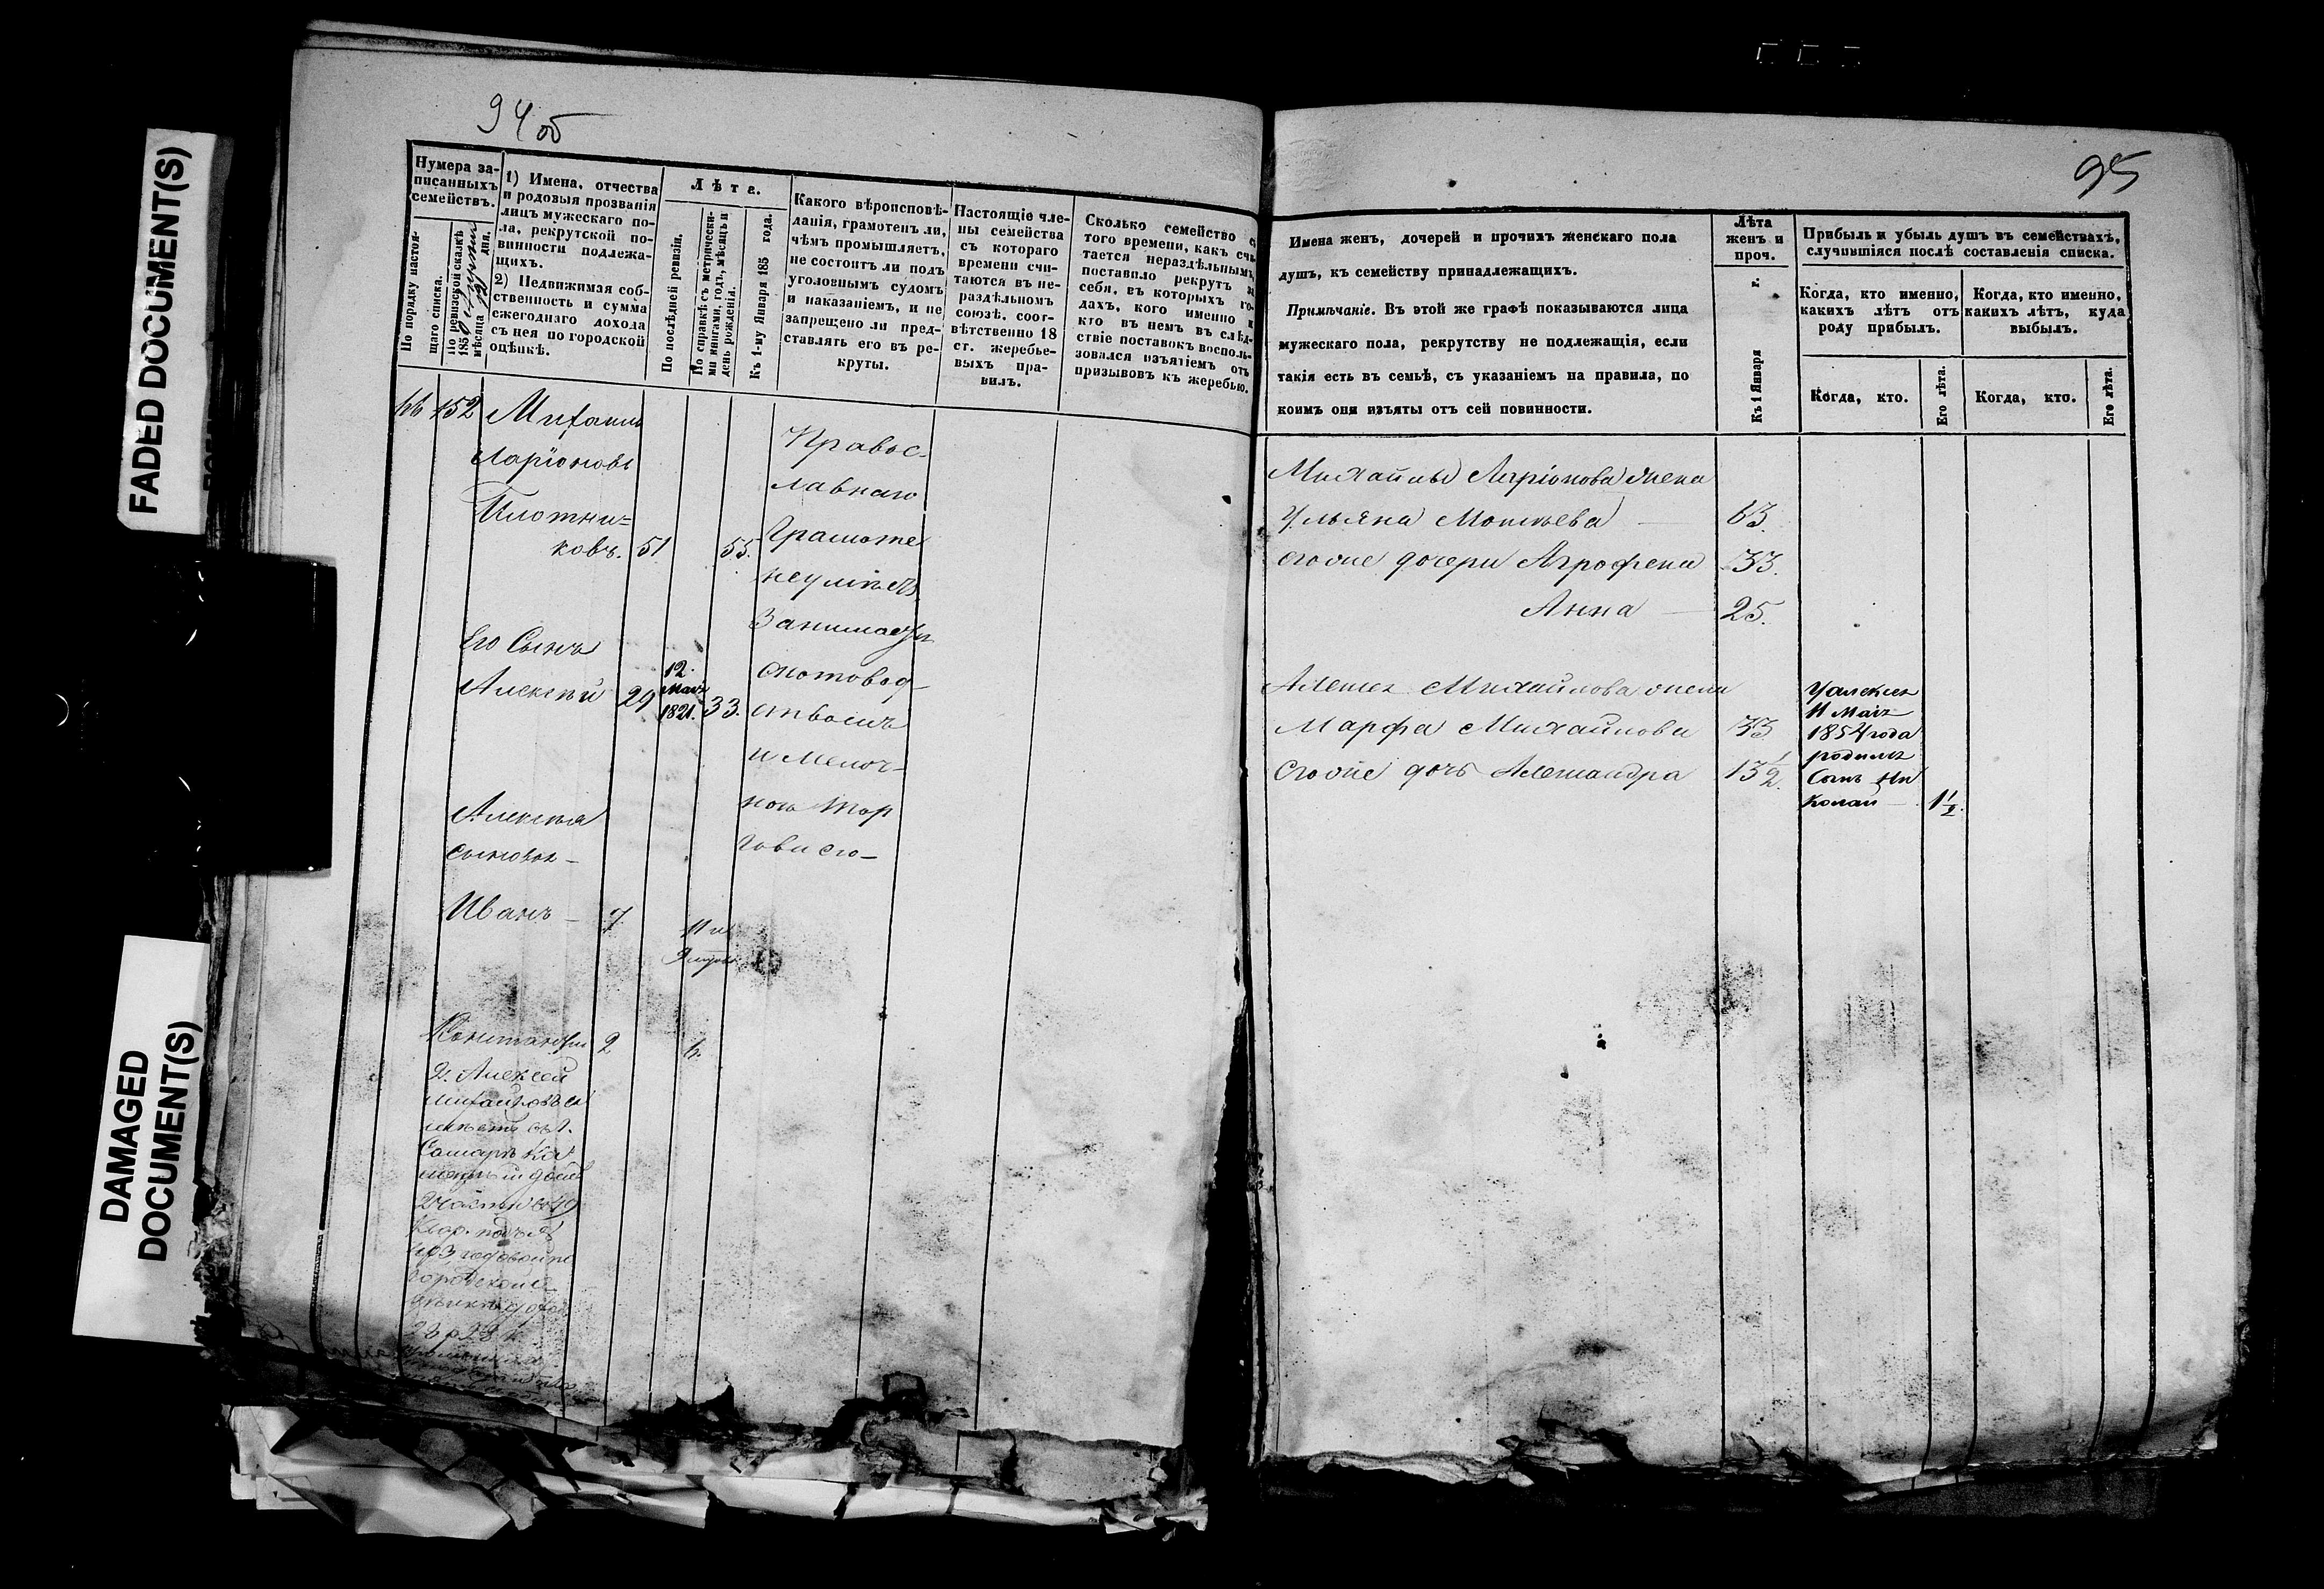 FADED DOCUMENT(S)
DAMAGED
DOCUMENT(S)
94 об
Нумера за-
писанныхъ
семействъ.
По порядку настоя-
щаго списка.
По ревизской сказкѣ
1850
мѣсяца дня.
1) Имена, отчества
и родовыя прозванія
лицъ мужескаго по-
ла, рекрутской по-
винности подлежа-
щихъ.
2) Недвижимая соб-
ственность и сумма
ежегоднаго дохода
съ нея по городской
оцѣнкѣ.
Лѣта.
По послѣдней ревизіи.
По справкѣ съ метрически-
ми книгами, годъ, мѣсяцъ и
день рожденія.
Къ 1-му Января 185 года.
Какого вѣроисповѣ-
данія, грамотенъ ли,
чѣмъ промышляетъ,
не состоитъ ли подъ
уголовнымъ судомъ
и наказаніемъ, и не
запрещено ли пред-
ставлять его въ ре-
круты.
Настоящіе чле-
ны семейства
съ котораго
времени счи-
таются въ не-
раздѣльномъ
союзѣ, соот-
вѣтственно 18
ст. жеребье-
выхъ пра-
вилъ.
Сколько семейство съ
того времени, какъ счи-
тается нераздѣльнымъ,
поставило рекрутъ за
себя, въ которыхъ го-
дахъ, кого именно и
кто въ немъ въ слѣд-
ствіе поставокъ восполь-
зовался изъятіемъ отъ
призывовъ къ жеребью.
152
Михаилъ
Ларіоновъ
Плотни=
ковъ. 51 55.
Правос-
лавнаго
Грамоте
неумѣетъ
Занимается
скотовод-
ствомъ
и Мелоч-
ною Тор
говлею
Его Сынъ
Алексѣй 29 12 Мая 1821. 33.
Алексѣя
сыновья
Иванъ 7. 11 и
Константинъ 2 6.
У. Алексея
Михайлова
имѣется въ г.
Самарѣ
домъ
2 части
городской
23 р 28 к
95
Имена женъ, дочерей и прочихъ женскаго пола
душъ, къ семейству принадлежащихъ.
Примѣчаніе. Въ этой же графѣ показываются лица
мужескаго пола, рекрутству не подлежащія, если
такія есть въ семьѣ, съ указаніемъ на правила, по
коимъ они изъяты отъ сей повинности.
Лѣта
женъ и
проч.
Къ 1 Января г.
Прибыль и убыль душъ въ семействахъ,
случившіяся послѣ составленія списка.
Когда, кто именно,
какихъ лѣтъ отъ
роду прибылъ.
Когда, кто именно,
какихъ лѣтъ, куда
выбылъ.
Когда, кто.
Его лѣта.
Когда, кто.
Его лѣта.
Михайлы Ларіонова жена
Ульяна Моисѣева 63.
его же дочери Агрофена 33.
Анна 25.
Алексея Михайлова жена
Марфа Михайлова 33
Его же дочь Александра 13 1/2.
У алексея
11 Мая
1854 года
родился
Сынъ Ни
колай 1 1/2.